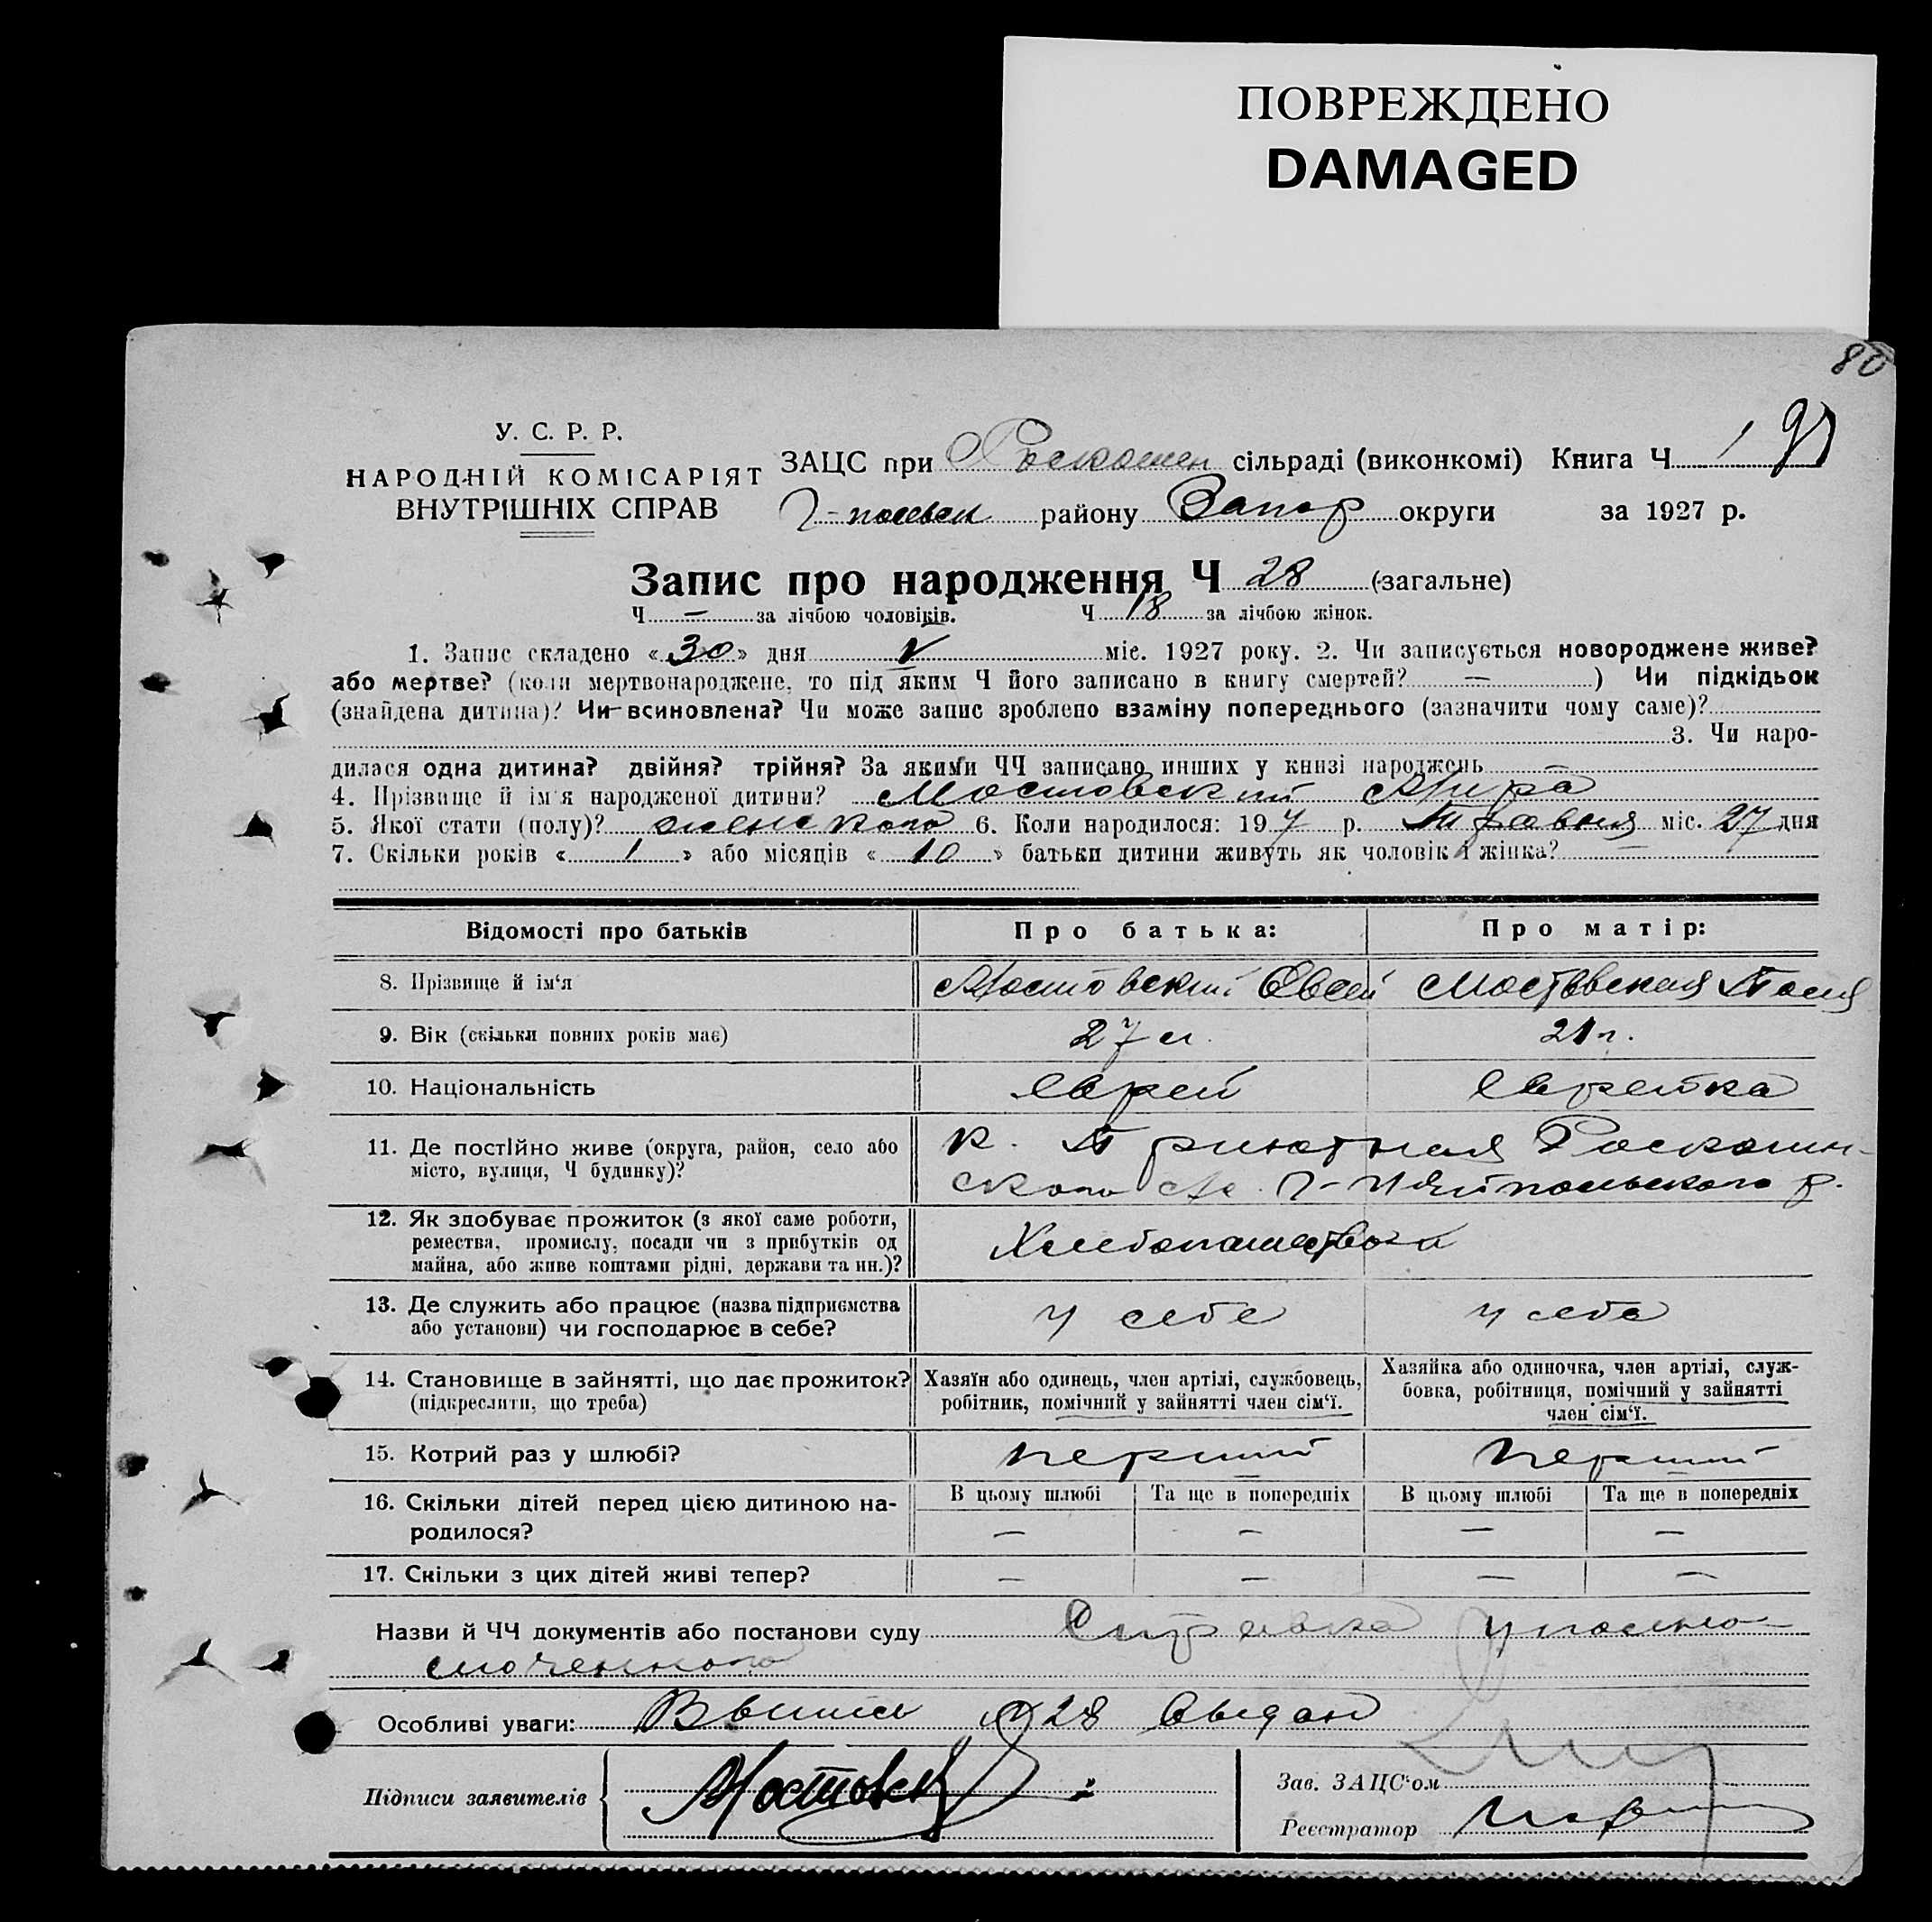 ПОВРЕЖДЕНО
DAMAGED
80
У. С. Р. Р.
НАРОДНІЙ КОМІСАРІЯТ
ВНУТРІШНІХ СПРАВ
ЗАЦС при Роскошен сільраді (виконкомі) Книга Ч 1
Г-польськ району Запор округи за 1927 р.
Запис про народження Ч 28 (загальне)
Ч — за лічбою чоловіків. Ч 18 за лічбою жінок.
1. Запис складено «30» дня V міс. 1927 року. 2. Чи записується новороджене живе?
або мертве? (коли мертвонароджене, то під яким Ч його записано в книгу смертей? — ) Чи підкідьок
(знайдена дитина)? Чи всиновлена? Чи може запис зроблено взаміну попереднього (зазначити чому саме)?
3. Чи наро-
дилася одна дитина? двійня? трійня? За якими ЧЧ записано инших у книзі народжень
4. Прізвище й ім'я народженої дитини? Мостовский
5. Якої стати (полу)? женского 6. Коли народилося: 197 р. Травня міс. 27 дня
7. Скільки років «1» або місяців «10» батьки дитини живуть як чоловік і жінка? —
Відомості про батьків Про батька: Про матір:
8. Прізвище й ім'я Мостовский Овсей Мостовская Пося
9. Вік (скільки повних років має) 27 л. 21 г.
10. Національність еврей еврейка
11. Де постійно живе (округа, район, село або
місто, вулиця, Ч будинку)?
к. Приютная Роскошин-
ского с/с. Г-Уляйпольского р.
12. Як здобуває прожиток (з якої саме роботи,
ремества, промислу, посади чи з прибутків од
майна, або живе коштами рідні, держави та ин.)?
Хлебопашеством
13. Де служить або працює (назва підприємства
або установи) чи господарює в себе?
у себе у себе
14. Становище в зайнятті, що дає прожиток?
(підкреслити, що треба)
Хазяїн або одинець, член артілі, службовець,
робітник, помічний у зайнятті член сім'ї.
Хазяйка або одиночка, член артілі, служ-
бовка, робітниця, помічний у зайнятті
член сім'ї.
15. Котрий раз у шлюбі? перший перший
16. Скільки дітей перед цією дитиною на-
родилося?
В цьому шлюбі Та ще в попередніх В цьому шлюбі Та ще в попередніх
— — — —
17. Скільки з цих дітей живі тепер? — — — —
Назви й ЧЧ документів або постанови суду Справка уполно-
моченного
Особливі уваги: Выпись №28 выдан
Підписи заявителів Мостовск
Зав. ЗАЦС'ом
Реєстратор